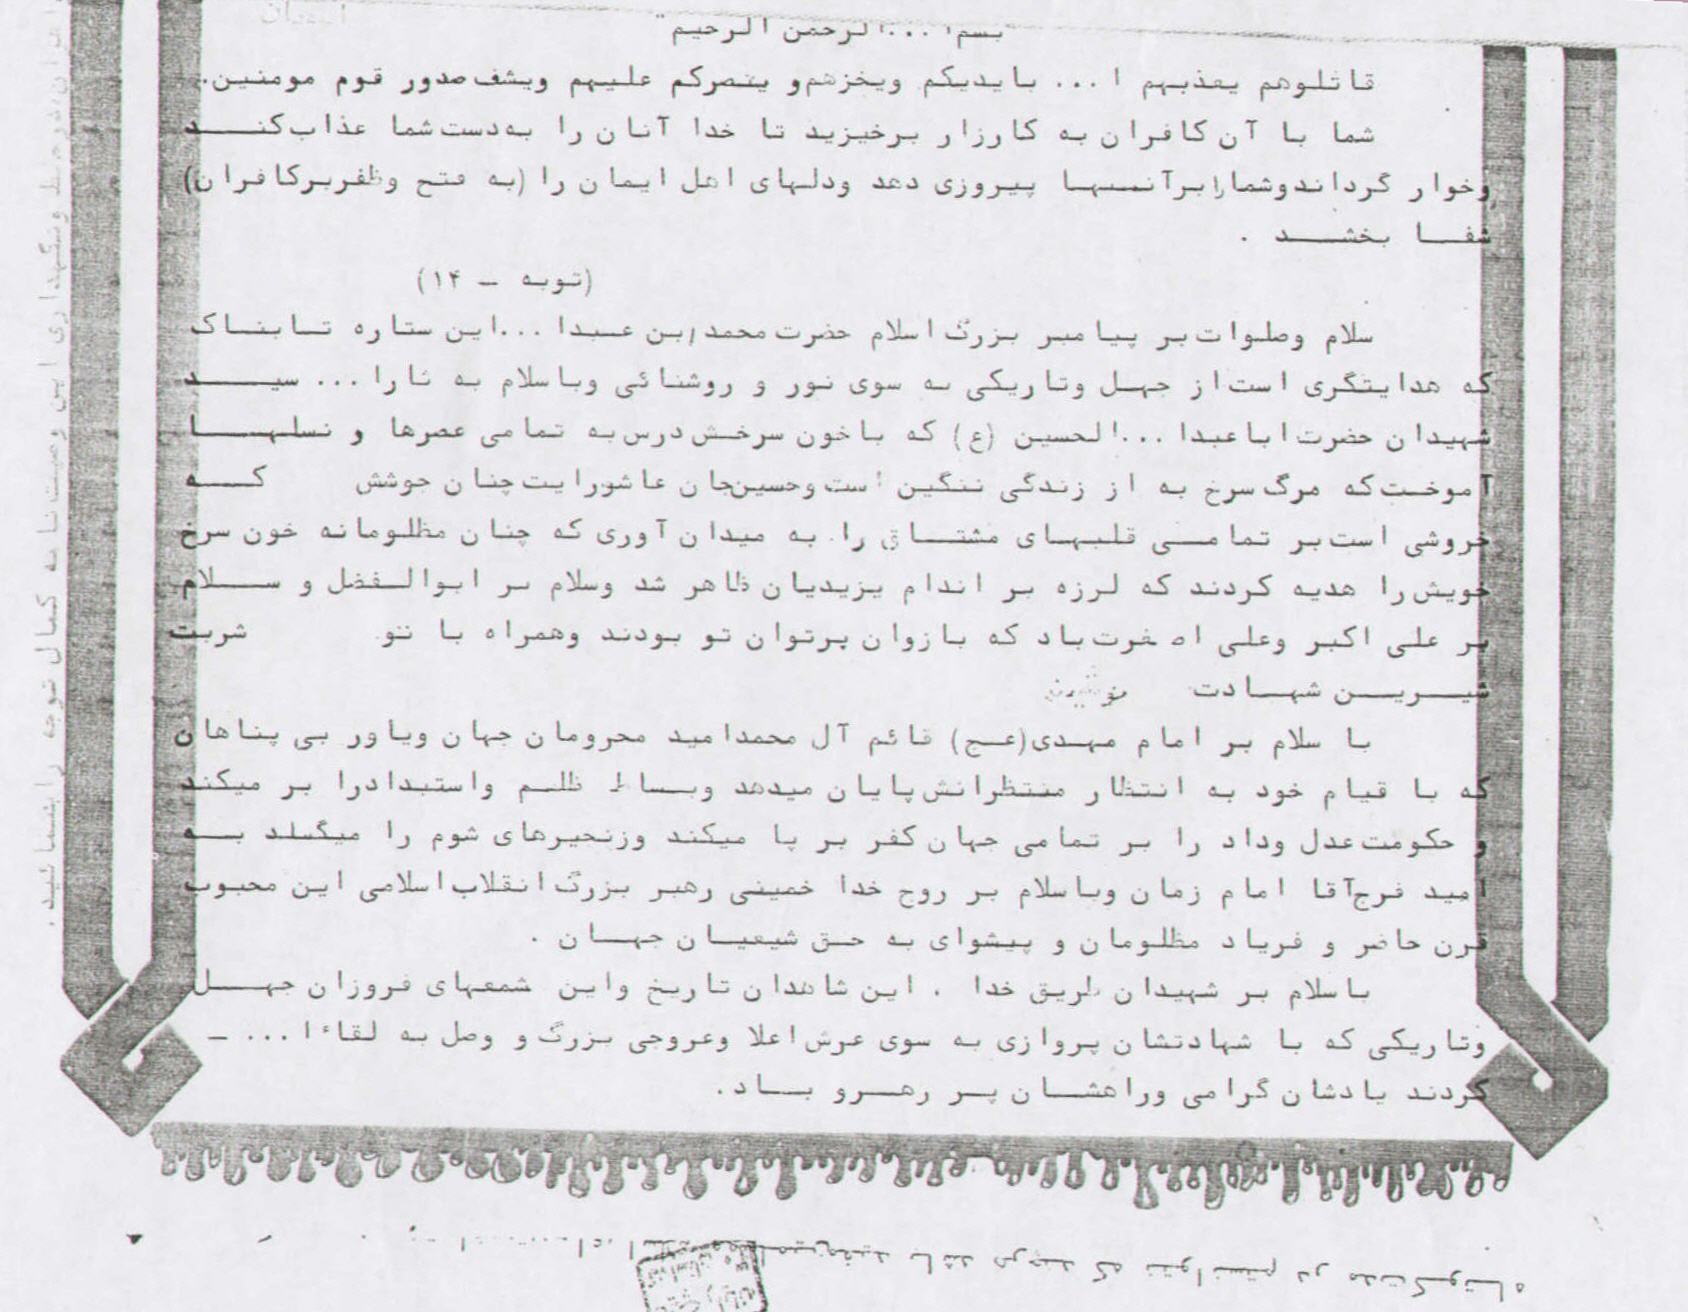 بسم ا ... الرحمن الرحیم
قاتلوهم یعذبهم ا ... بایدیکم ویخزهم و ینصرکم علیهم ویشف صدور قوم مومنین.
شما با آن کافران به کارزار برخیزید تا خدا آنان را به دست شما عذاب کنــد
وخوار گرداند وشما را برآنــها پیروزی دهد ودلهای اهل ایمان را (به فتح وظفر برکافران)
شفــا بخشــد .
(توبه - ۱۴)
سلام وصلوات بر پیامبر بزرگ اسلام حضرت محمد ابن عبدا ... این ستاره تابناک
که هدایتگری است از جهل وتاریکی به سوی نور و روشنائی وباسلام به ثارا ... سیــد
شهیدان حضرت اباعبدا ... الحسین (ع) که باخون سرخش درس به تمامی عصرها و نسلهــا
آموخت که مرگ سرخ به از زندگی ننگین است وحسین جان عاشورایت چنان جوشش کــه
خروشی است بر تمامــی قلبهای مشتــاق را به میدان آوری که چنان مظلومانه خون سرخ
خویش را هدیه کردند که لرزه بر اندام یزیدیان ظاهر شد وسلام بر ابوالفضل و ســلام
بر علی اکبر وعلی اصغرت باد که بازوان پرتوان تو بودند وهمراه با تو شربت
شیــریــن شهــادت نوشیدند
با سلام بر امام مهدی (عج) قائم آل محمد امید محرومان جهان ویاور بی پناهان
که با قیام خود به انتظار منتظرانش پایان میدهد وبساط ظلم واستبداد را بر میکند
و حکومت عدل وداد را بر تمامی جهان کفر بر پا میکند وزنجیرهای شوم را میگسلد بــه
امید فرج آقا امام زمان وباسلام بر روح خدا خمینی رهبر بزرگ انقلاب اسلامی این محبوب
قرن حاضر و فریاد مظلومان و پیشوای به حق شیعیان جهــان .
باسلام بر شهیدان طریق خدا . این شاهدان تاریخ واین شمعهای فروزان جهــل
وتاریکی که با شهادتشان پروازی به سوی عرش اعلا وعروجی بزرگ و وصل به لقاءا ... -
کردند یادشان گرامی وراهشــان پــر رهــرو بــاد.
ونگهداری این وصیتنامه کمال توجه را بنمائید.